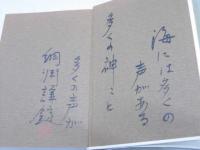 海には多くの
声がある
多くの神々と
多くの声が
綱淵謙錠